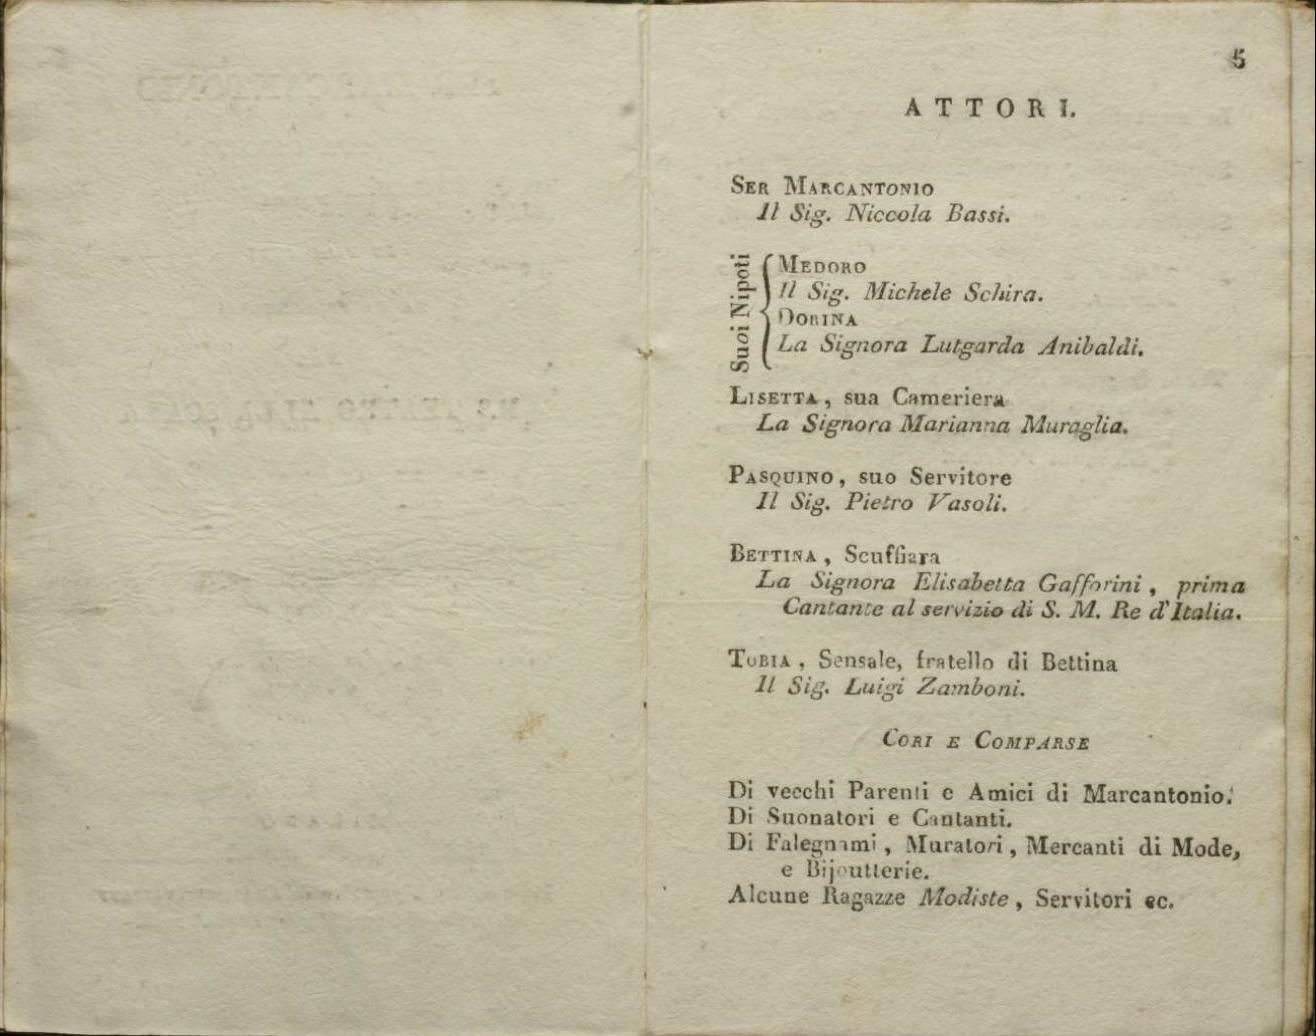 5
ATTORI.
SER MARCANTONIO
Il Sig. Niccola Bassi.
Suoi Nipoti
MEDORO
Il Sig. Michele Schira.
DORINA
La Signora Lutgarda Anibaldi.
LISETTA, sua Cameriera
La Signora Marianna Muraglia.
PASQUINO, suo Servitore
Il Sig. Pietro Vasoli.
BETTINA, Scuffiara
La Signora Elisabetta Gafforini, prima
Cantante al servizio di S. M. Re d'Italia.
TOBIA, Sensale, fratello di Bettina
Il Sig. Luigi Zamboni.
CORI E COMPARSE
Di vecchi Parenti e Amici di Marcantonio.
Di Suonatori e Cantanti.
Di Falegnami, Muratori, Mercanti di Mode,
e Bijoutterie.
Alcune Ragazze Modiste, Servitori ec.